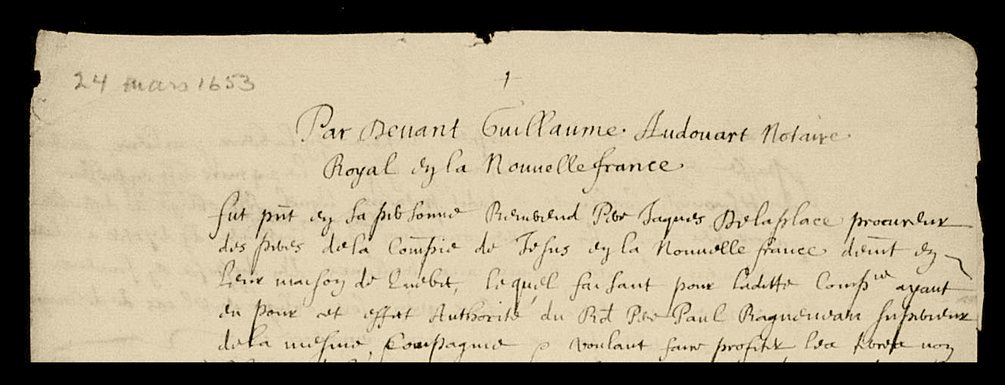 24 mars 1653
Par Devant Guillaume Audouart Notaire
Royal en la Nouvelle france
fut pnt en sa personne Reverend Pere Jaques Delaplace procureur
des peres de la Compie de Jesus en la Nouvelle france demt en
leur maison de Quebec, lequel faisant pour laditte Compie ayant
en pour cet effet Authorité du Rd Pere Paul Ragueneau superieur
de la mesme Compagnie & voulant faire profiter les terres non